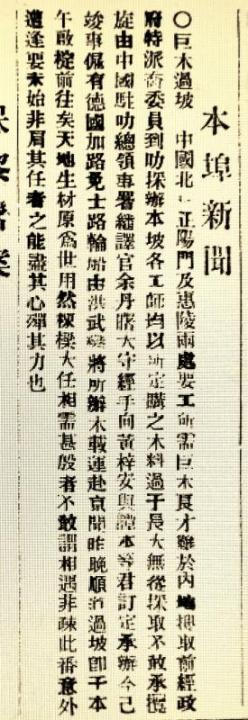 本埠新聞
〇巨木過坡　中國北　正陽門及惠陵兩處要工所需巨木長才難於內地採取前經政
府特派畨委員到叻採辦本坡各工師均以所定購之木料過于長大無從採取不敢承攬
旋由中國駐叻總領事署繙譯官余丹曙大守經手向黃梓安與譚本等君訂定承辦今已
竣事僱有德國加路免士路輪船由洪武　將所辦木載運赴京聞昨晚順　過坡卽于本
午啟椗前往矣天地生材原爲世用然棟樑大任相需甚殷者不敢謂相遇非疎此番意外
遭逢要未始非肩其任者之能盡其心殫其力也